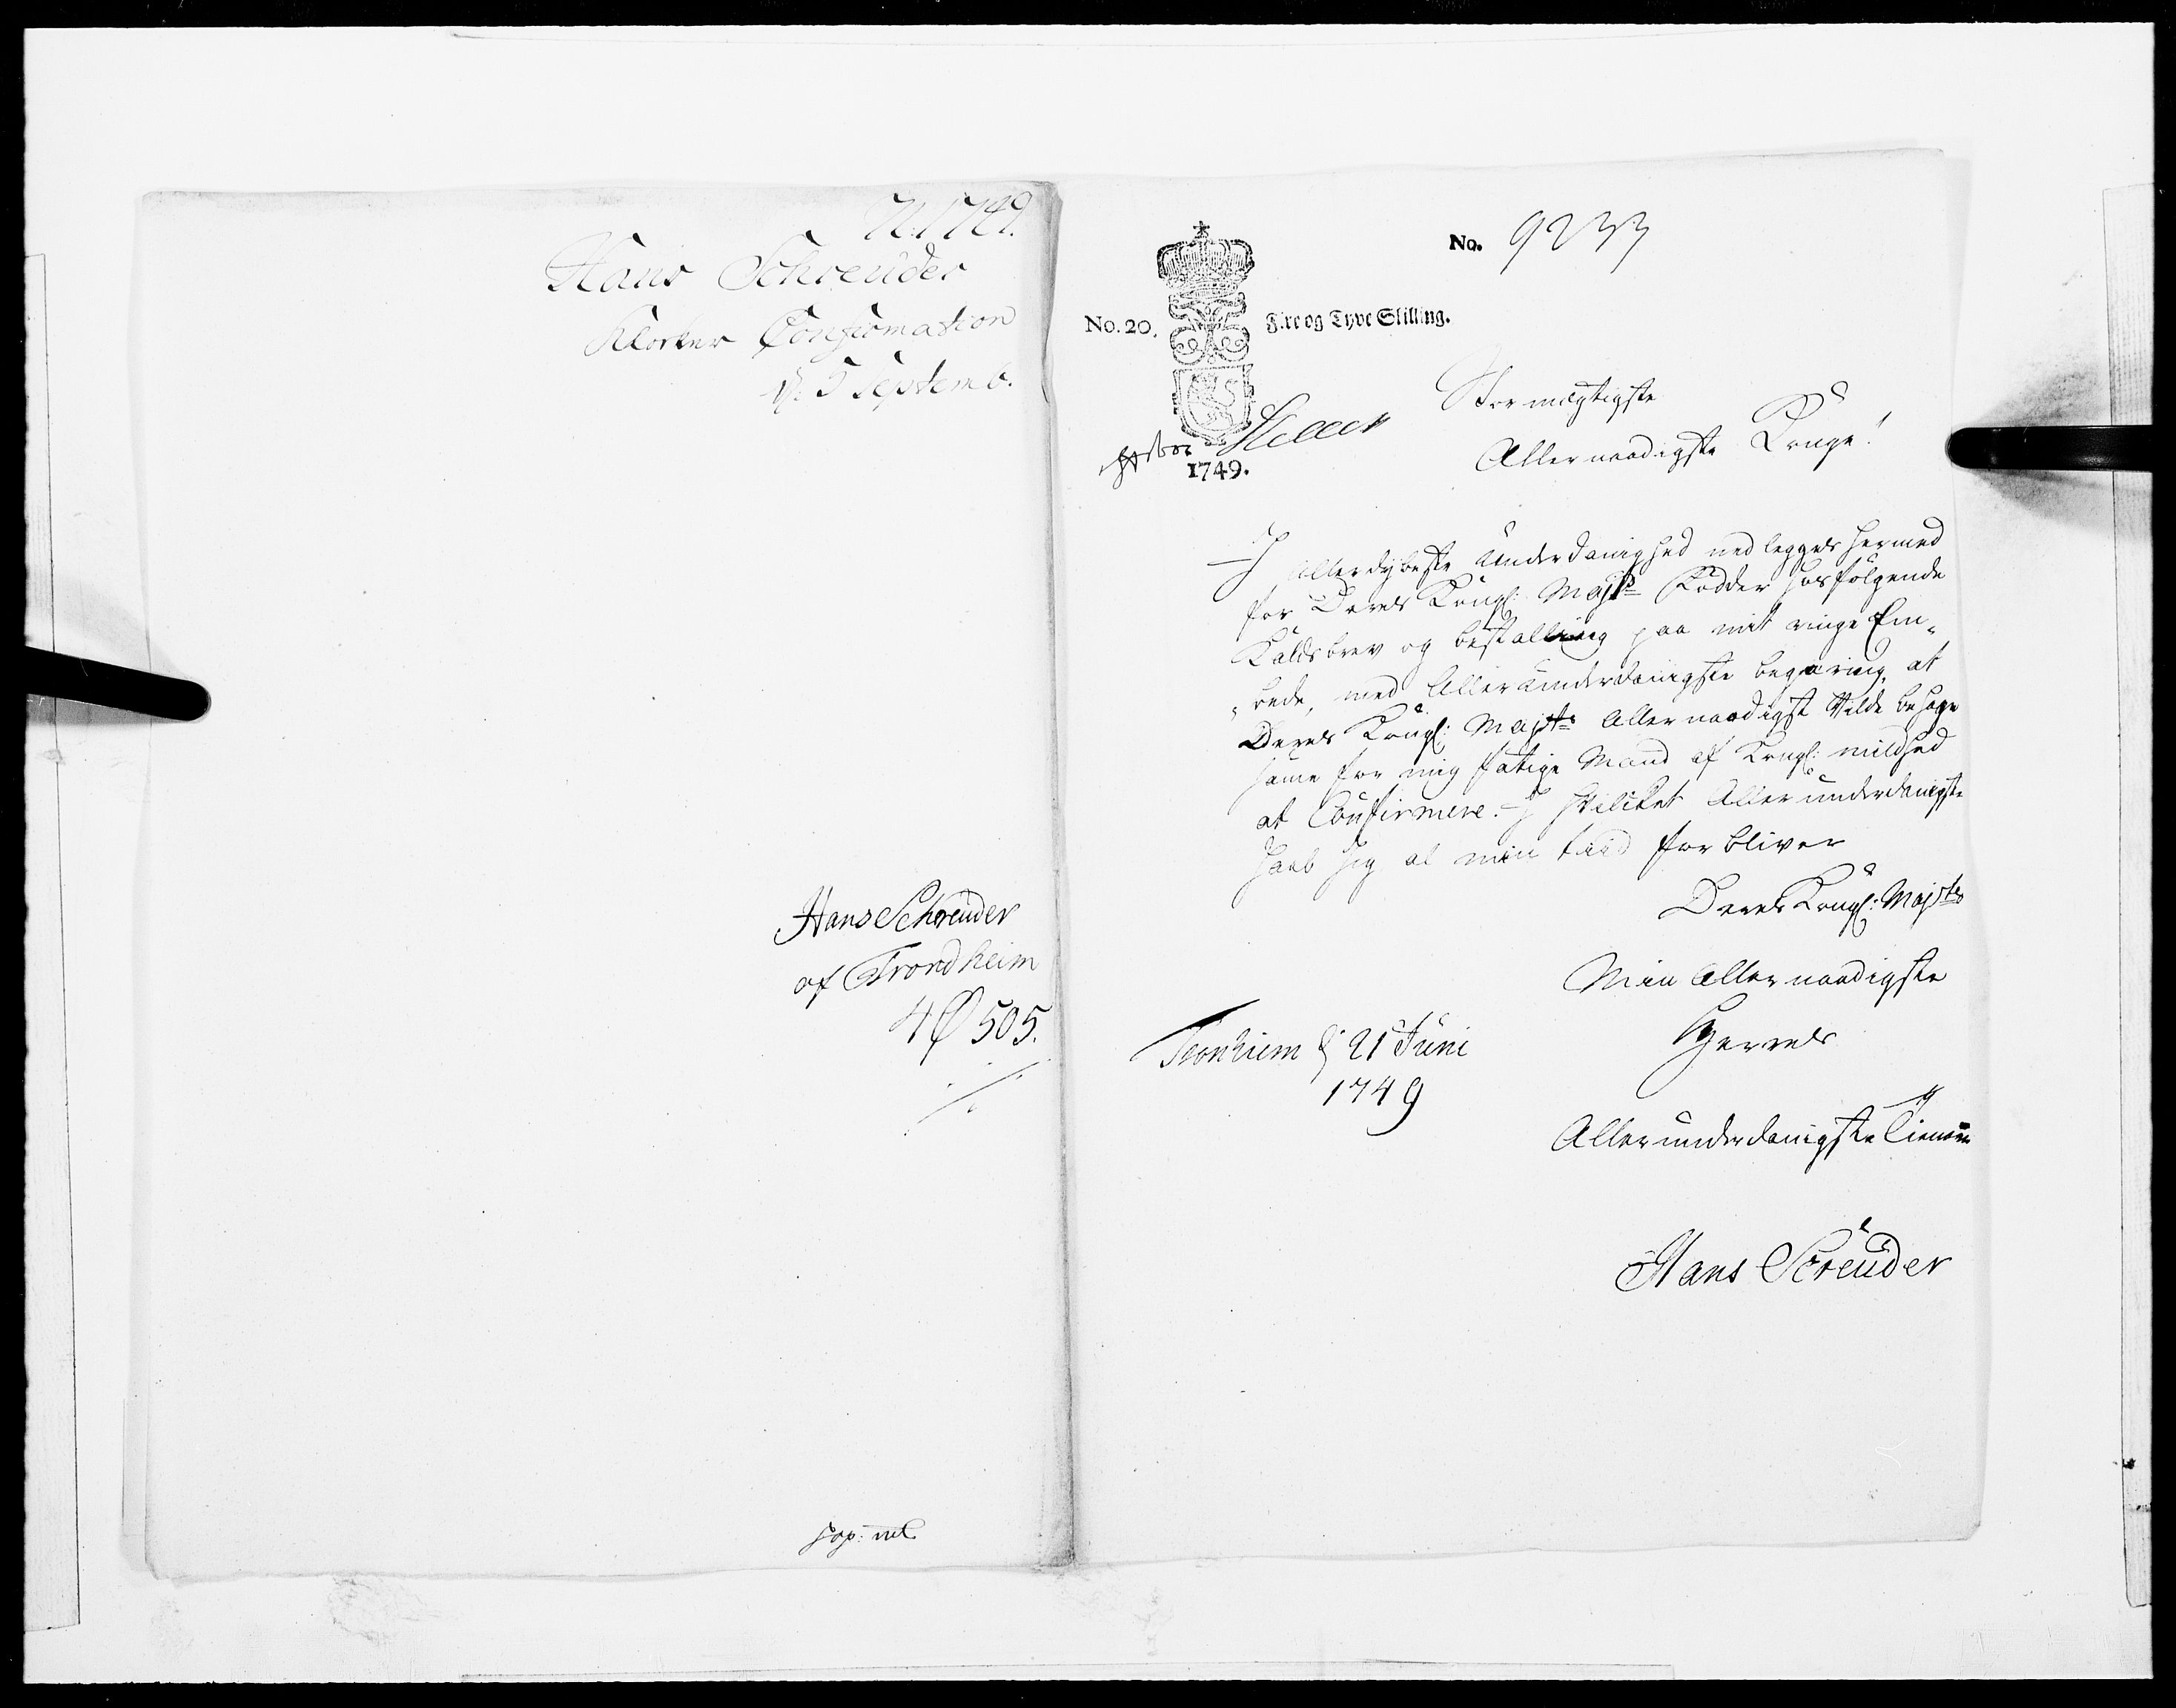 N. 1749.
Hans Schreuder
Klocker Confirmation
d. 5 Septemb.
Hans Schreuder
af Trondheim
505.
No. 9233
No. 20. Fire og Tyve Skilling.
1749.
Stormægtigste
Allernaadigste Konge!
I Allerdybeste Underdanighed nedlegges hermed
for Deres Kongl: Majts Fødder hosfølgende
Kaldsbrev og bestalling paa mit ringe Em¬
bede, med Allerunderdanigste begæring, at
Deres Kongl: Majts Allernaadigst Vilde behage
same for mig fatige Mand af Kongl: mildhed
at Confirmere. I hvilcket Allerunderdanigste
haab jeg al min tiid forbliver
Deres Kongl: Majts
Min Allernaadigste
Herres
Tronhiem d 21 Juni
1749
Allerunderdanigste Tienner
Hans Screuder